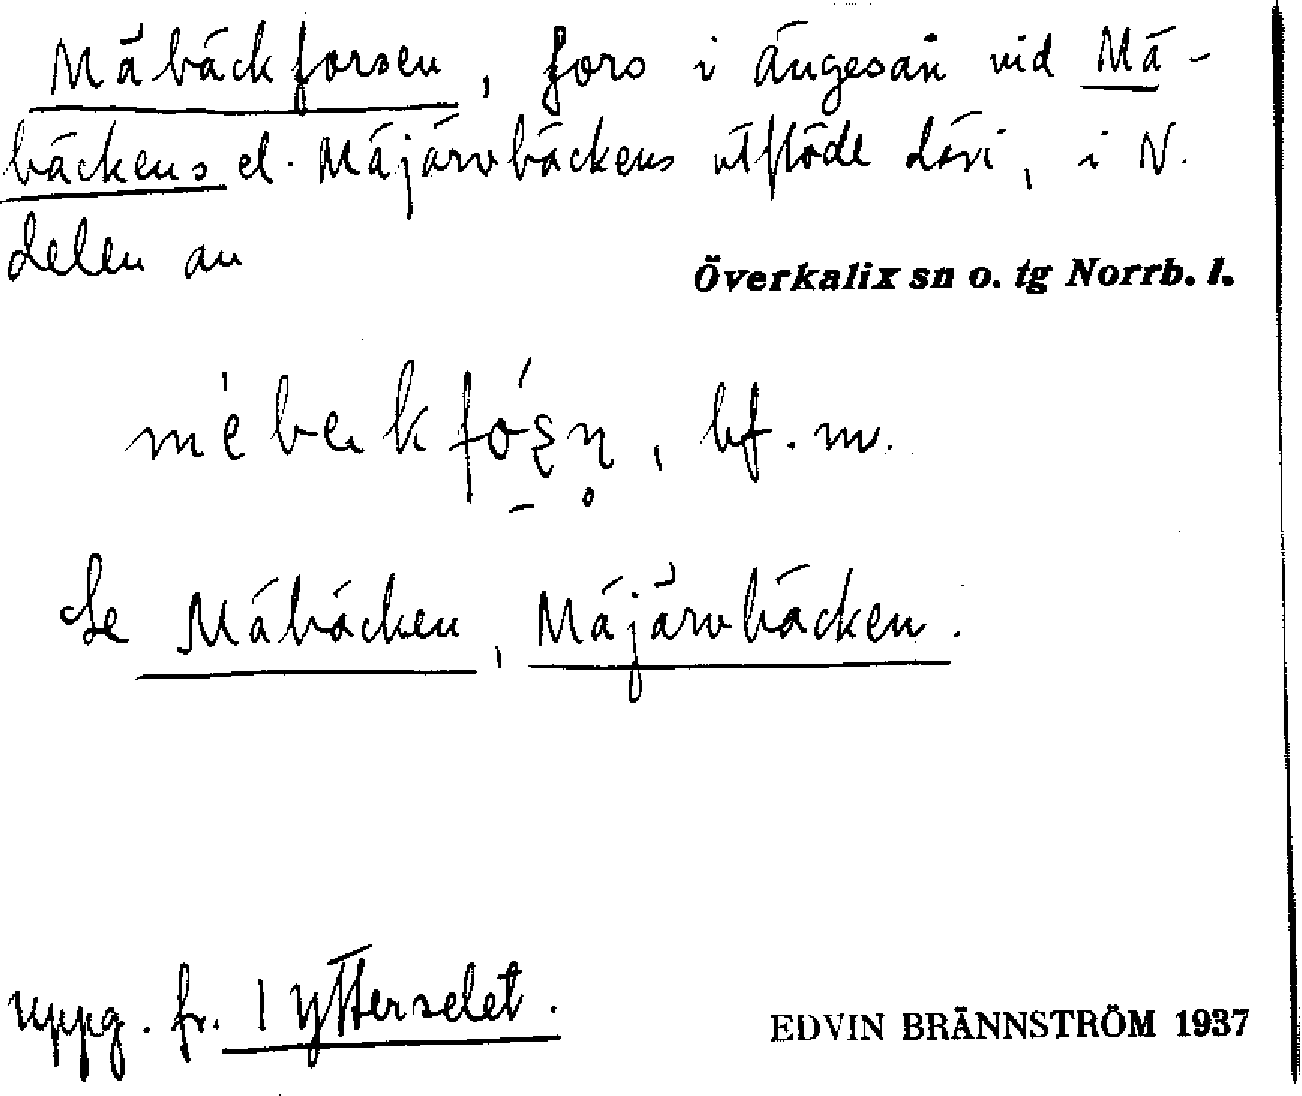 Måbäckforsen, fors i Ängesån vid Må-
bäckens el. Måjärvbäckens utflöde däri, i N.
delen av
Överkalix sn o. tg Norrb. l.
bf. m.
Se Måbäcken, Måjärvbäcken.
uppg. fr. 1 Ytterselet.
EDVIN BRÄNNSTRÖM 1937